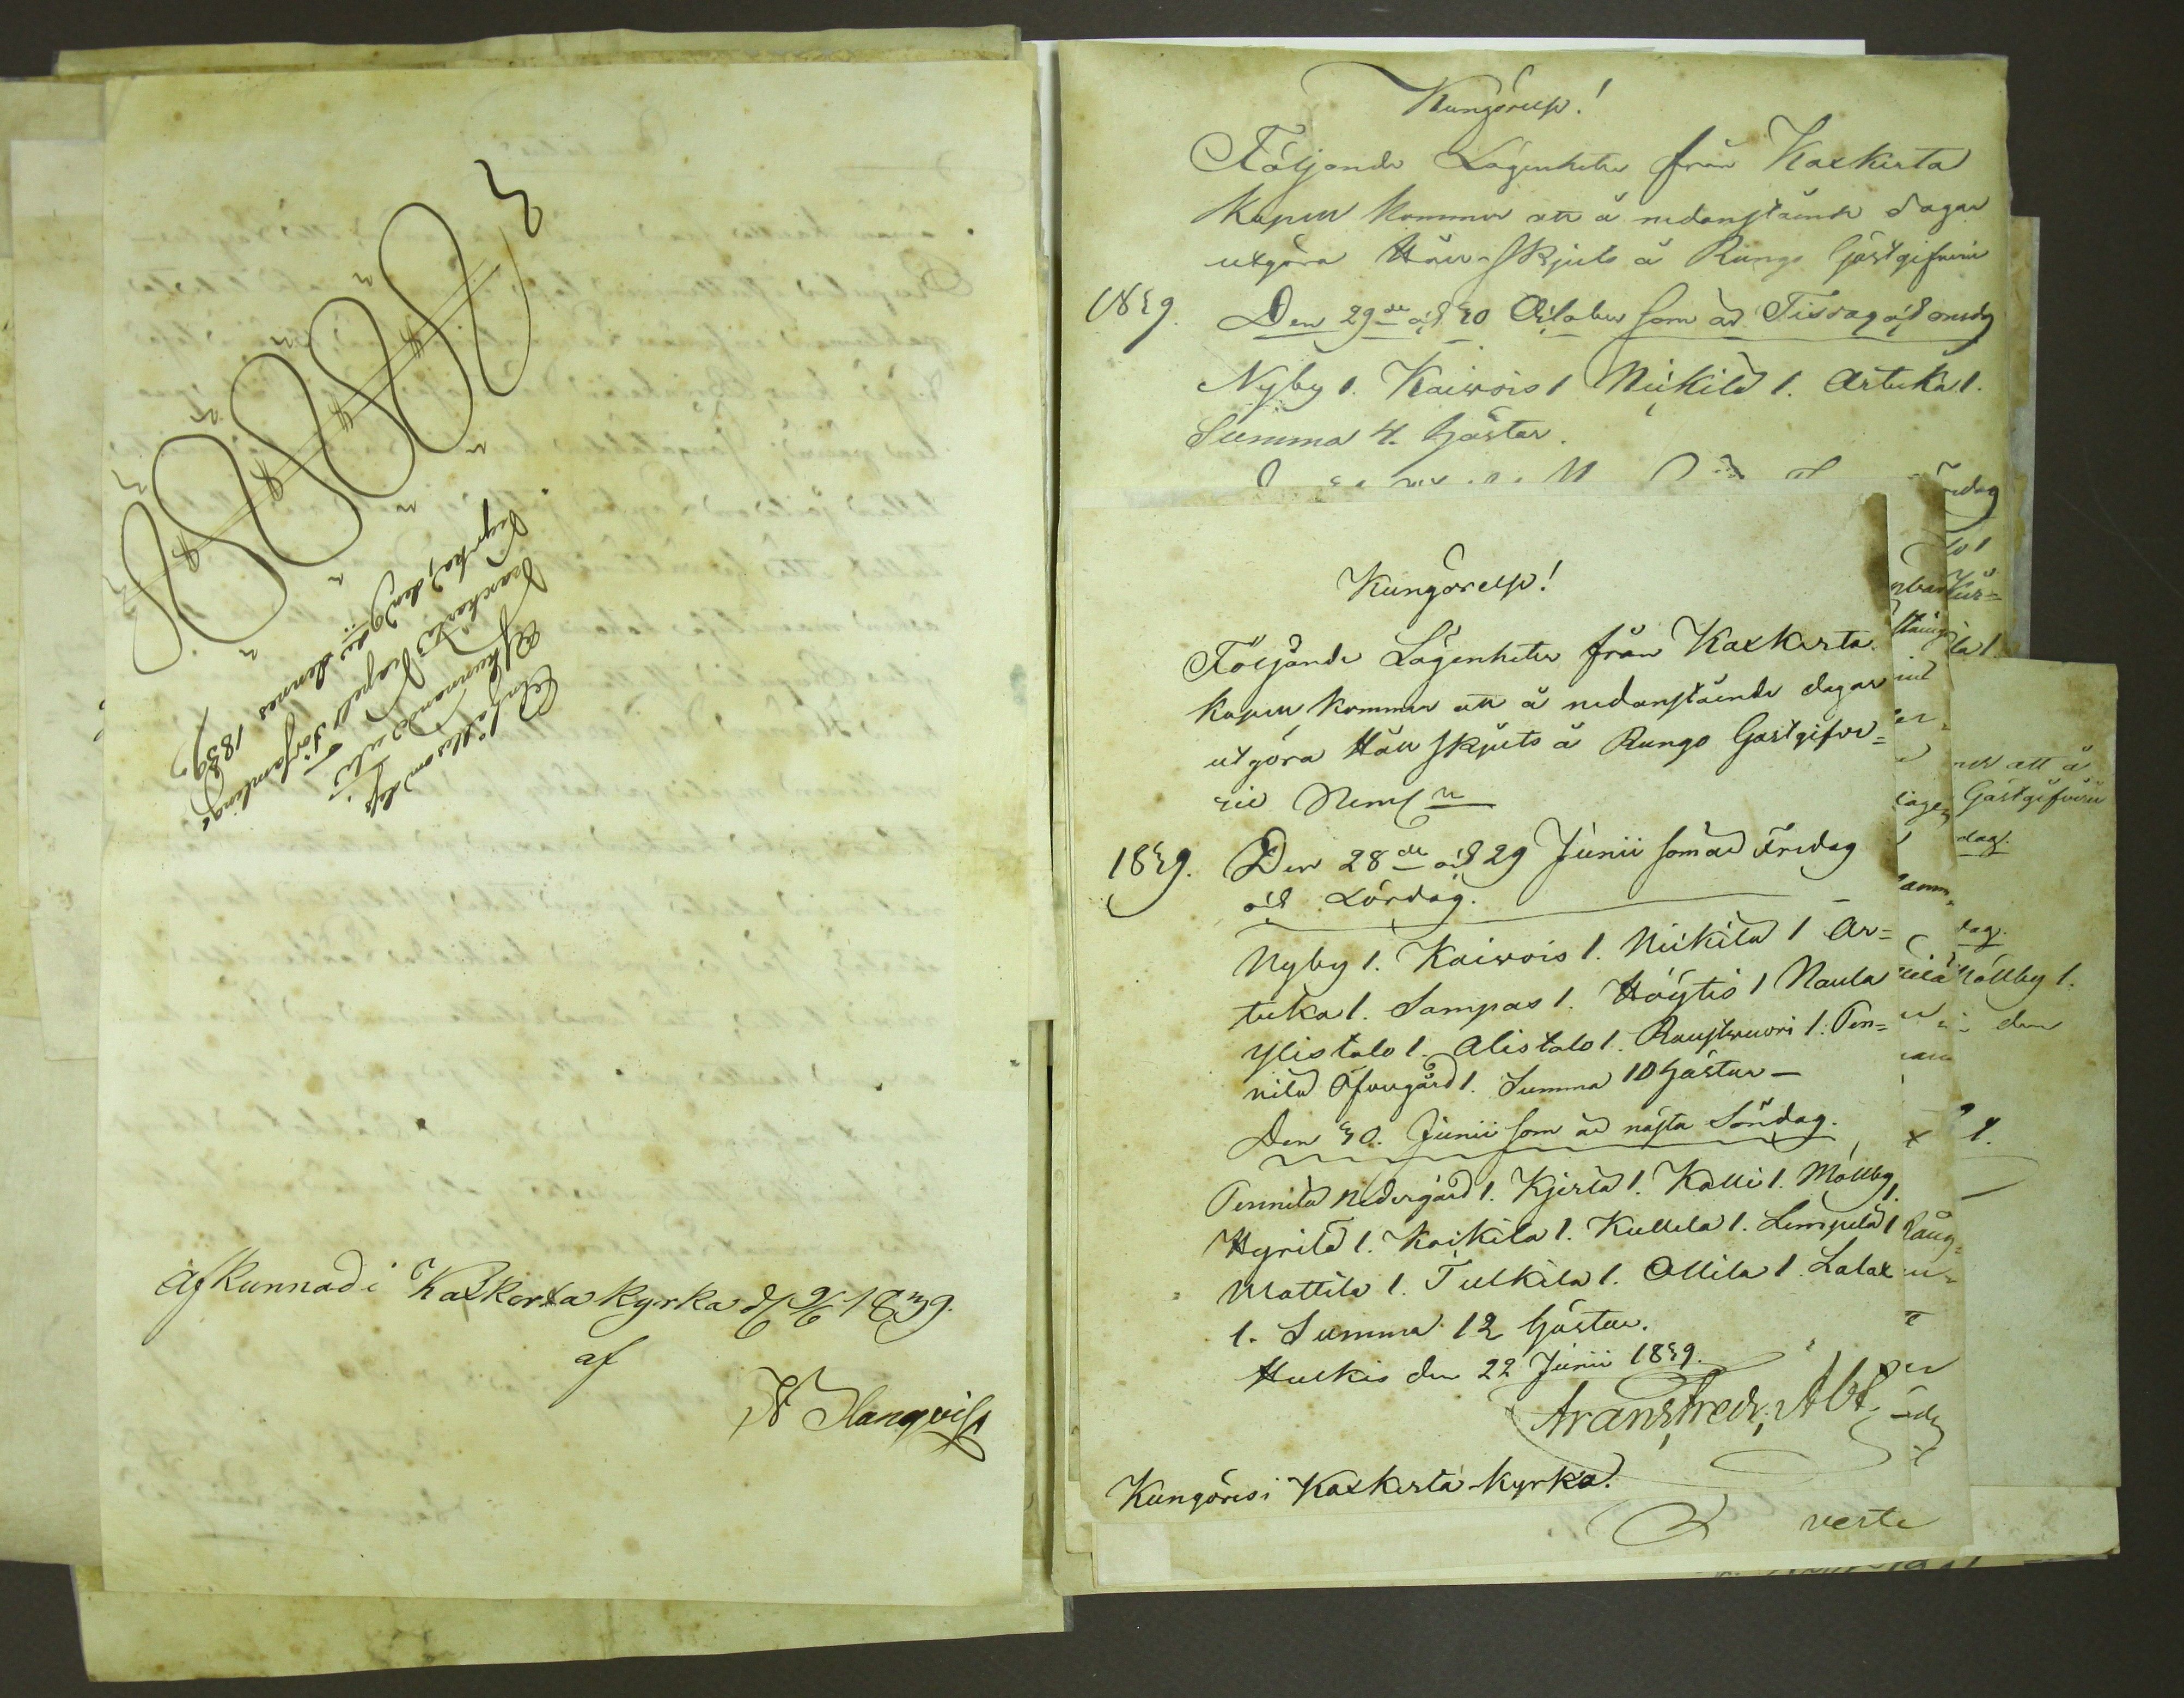 afkunnad i Kaxkerta kyrka d. 9/6 1839.
af
Anhålles om deſs
Afkunnande uti
Kaxkerta Capell Församlings
kyrka, den 9de dennes 1839,
Kungörelse!
Följande Lägenheter från Kaxkerta
kapell kommer att å nedanstående dagar
utgöra Håll-skjuts å Rungo Gästgifveri
1839. Den 29de och 30 October som är Tisdag och onsdg
Nyby 1. Kaiwois 1 Niikilä 1. Artuka 1.
Summa 4. hästar.
Kungörelse!
Följande Lägenheter från Kaxkerta
kapell kommer att å nedanstående dagar
utgöra Håll skjuts å Rungo Gästgifve=
rie
1839. Den 28de och 29 Junii som är Fredag
och Lördag.
Nyby 1. Kaiwois 1. Niikilä 1 Ar=
tuka 1. Sampas 1. Höytis 1 Naula
Ylistalo 1. Alistalo 1. Raustvuori 1. Pen=
nilä Öfvergård 1. Summa 10 hästar —
Den 30. Junii som är nästa Söndag.
Pennilä Nedergård 1. Kjerla 1. Kalli 1. Mällby 1.
Hyrilä 1. Koikila 1. Kullela 1. Lempilä 1
Mattila 1. Tulkila 1. Ollila 1. Lalax
1. Summa 12 hästar.
Hulkis den 22 Junii 1839.
Kungöres i Kaxkerta kyrka.
verte
ndag
att å
Gästgifveri
dag.
dag.
Mällby 1.
den